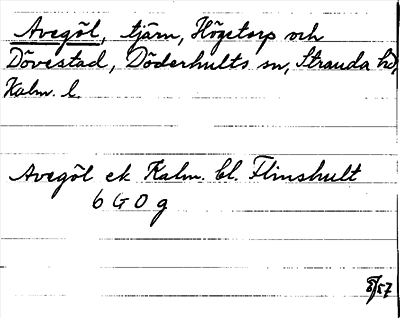 Avegöl, tjärn, Högetorp och
Dövestad, Döderhults sn, Stranda hd,
Kalm. l.
Avegöl ek Kalm. bl. Flinshult
6 G O g
8/57